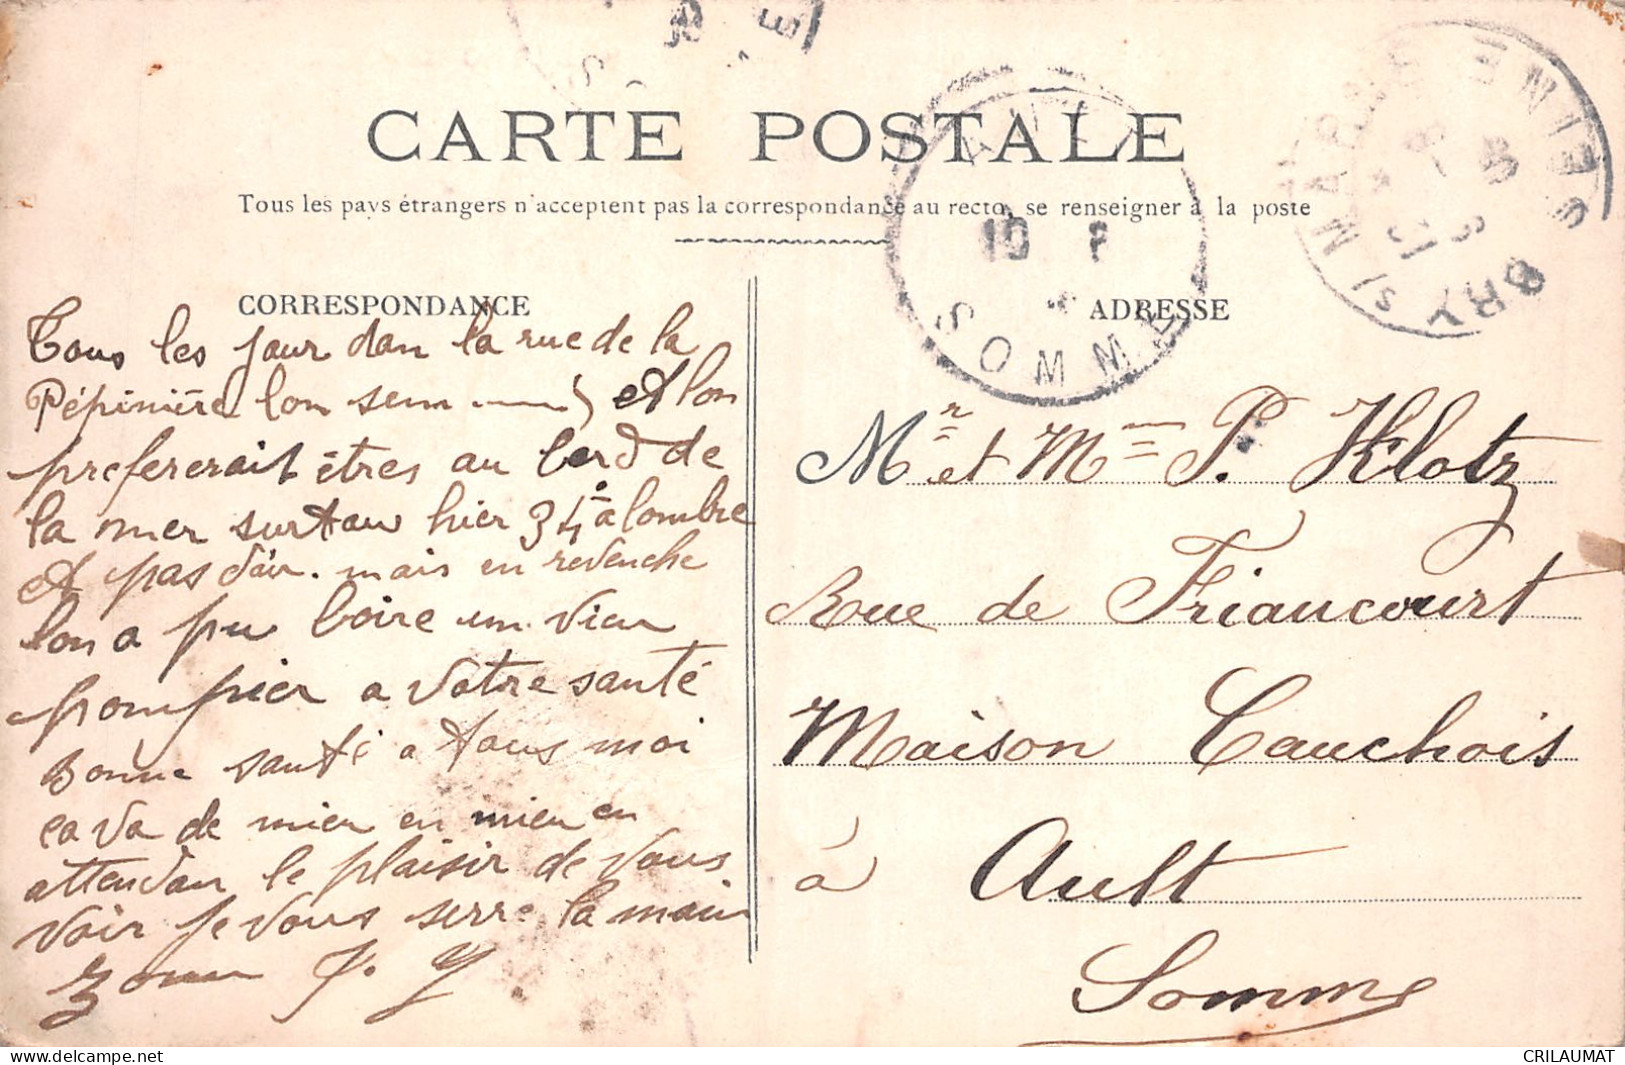 CARTE POSTALE
Tous les pays étrangers n'acceptent pas la correspondance au recto, se renseigner à la poste
CORRESPONDANCE
Tous les jour dan la rue de la
Pépinière lon sem et lon
prefererait êtres au bord de
la mer surtau hier 34° a lombre
et pas d'air. mais en revenche
lon a pu boire un vieu
pompier a votre santé
Bonne santé a tous moi
ça va de mieu en mieu en
attendan le plaisir de vous
voir je vous serre la main
ADRESSE
Mr et Mme P. Klotz
Rue de Friancourt
Maison Cauchois
à Ault
Somme
SOMME
10
BRY S/ MARNE
SEINE
CRILAUMAT